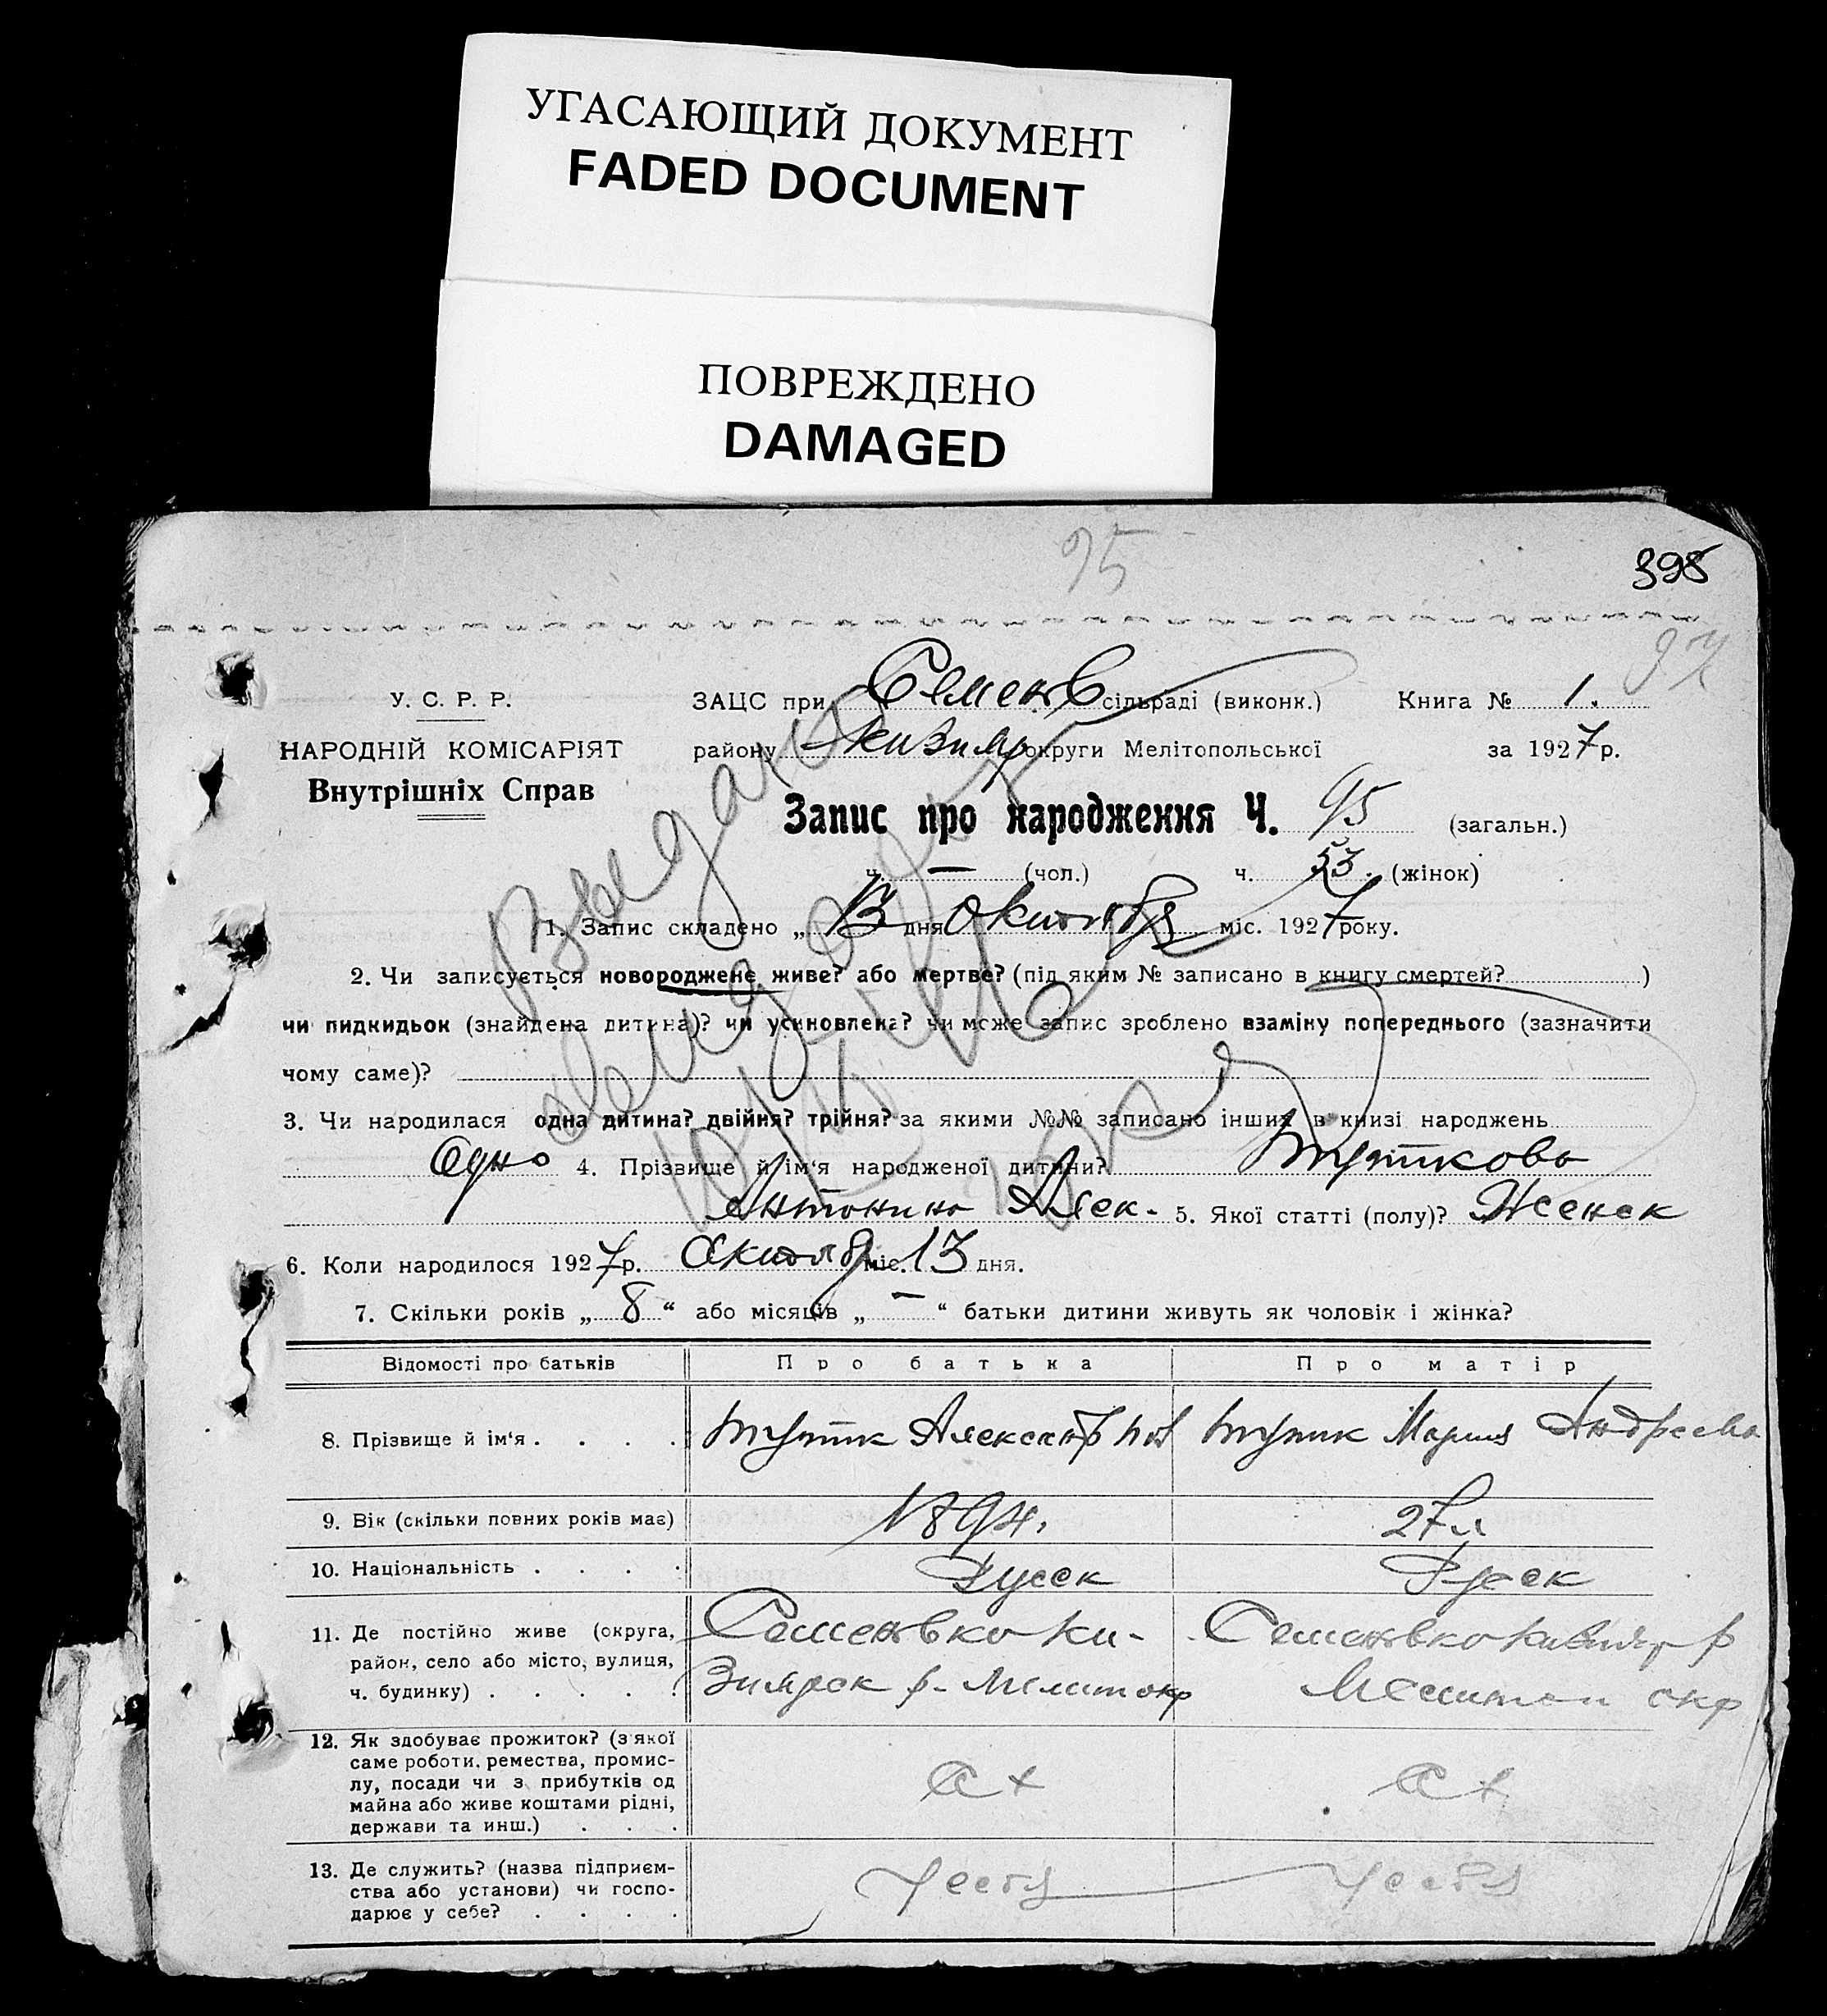 УГАСАЮЩИЙ ДОКУМЕНТ
FADED DOCUMENT
ПОВРЕЖДЕНО
DAMAGED
95
398
У. С. Р. Р.
НАРОДНІЙ КОМІСАРІЯТ
Внутрішніх Справ
ЗАЦС при Семенв сільраді (виконк.) Книга № 1.
району Кизияр округи Мелітопольської за 1927 р.
Запис про народження Ч. 95 (загальн.)
ч. — (чол.) ч. 53. (жінок)
1. Запис складено „ 13 дня Октября міс. 1927 року.
2. Чи записується новороджене живе? або мертве? (під яким № записано в книгу смертей? )
чи пидкидьок (знайдена дитина)? чи усиновлена? чи може запис зроблено взаміну попереднього (зазначити
чому саме)?
3. Чи народилася одна дитина? двійня? трійня? за якими №№ записано інших в книзі народжень
Одно 4. Прізвище й ім'я народженої дитини?
Антонина Алек. 5. Якої статті (полу)? Женск
6. Коли народилося 1927 р. Октяб міс. 13 дня.
7. Скільки років „ 8 “ або місяців „ — “ батьки дитини живуть як чоловік і жінка?
Відомості про батьків Про батька Про матір
8. Прізвище й ім'я . . . . Александр Мария Андреева
9. Вік (скільки повних років має) 1894. 27 л
10. Національність . . . . Русск Русск
11. Де постійно живе (округа, Семенвка Ки- Семенвка Кизияр р
район, село або місто, вулиця, зиярск р. Мелит окр Мелитоп окр
ч. будинку) . . . . .
12. Як здобуває прожиток? (з якої
саме роботи, ремества, промис-
лу, посади чи з прибутків од
майна або живе коштами рідні,
держави та инш.) . . .
13. Де служить? (назва підприєм-
ства або установи) чи госпо-
дарює у себе? . . . .